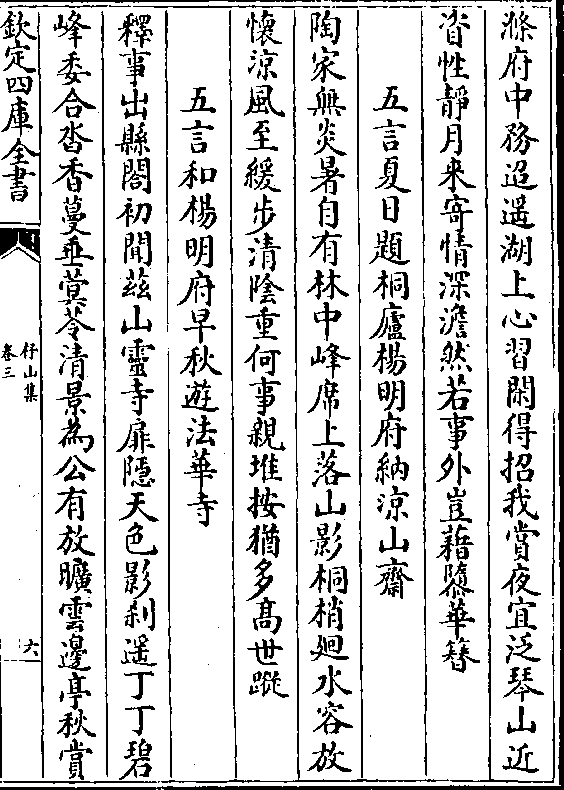 滌府中務迢遥湖上心習閑得招我賞夜宜泛琴山近
資性靜月来寄情深澹然若事外豈藉隳華簪
五言夏日題桐廬楊明府納凉山齋
陶家無炎暑自有林中峰席上落山影桐梢廻水容放
懷涼風至緩步清陰重何事親堆按猶多髙世蹤
五言和楊明府早秋遊法華寺
釋事出縣閣初聞茲山靈寺扉隠天色影刹遥丁丁碧
峰委合沓香蔓垂蓂苓清景為公有放曠雲邊亭秋賞
欽定四庫全書
杼山集
卷三
六